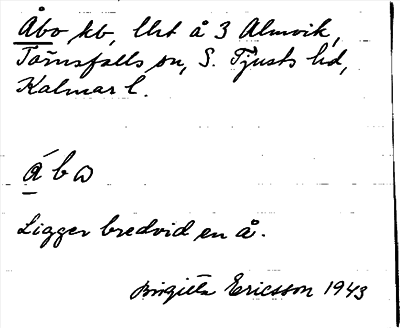 Åbo, kb, lht å 3 Almvik,
Törnsfalls sn, S. Tjusts hd,
Kalmar l.
åbω
Ligger bredvid en å.
Birgitta Ericsson 1943